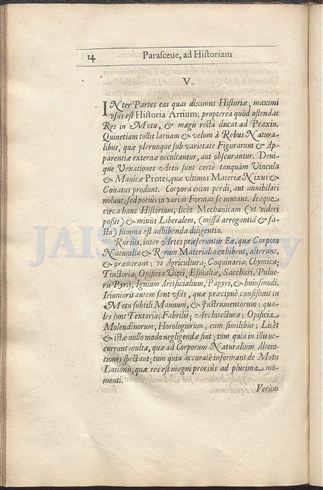 14 Parasceue, ad Historiam
V.
INter Partes eas quas diximus Historiæ, maximi
usûs est Historia Artium; propterea quòd ostendat
Res in Motu, & magis rectà ducat ad Praxin.
Quinetiam tollit larvam & velum à Rebus Natura-
libus, quæ plerunque sub varietate Figurarum & Ap-
parentiæ externæ occultantur, aut obscurantur. Deni-
que Vexationes Artis sunt certè tanquàm Vincula
& Manicæ Protei, quæ ultimos Materiæ Nixus &
Conatus produnt. Corpora enim perdi, aut annihilari
nolunt; sed potiùs in varias Formas se mutant. Itaque
circa hanc Historiam, licèt Mechanicam (ut videri
possit) & minùs Liberalem, (missâ arrogantiâ & fa-
stu) summa est adhibenda diligentia.
Rursùs, inter Artes præferuntur Eæ, quæ Corpora
Naturalia & Rerum Materialia exhibent, alterant,
& præparant; ut Agricultura; Coquinaria; Chymica;
Tinctoria; Opificia Vitri, Esmaltæ, Sacchari, Pulve-
ris Pyrij, Ignium Artificialium, Papyri, & hujusmodi.
Jejunioris autem sunt usûs, quæ præcipuè consistunt in
Motu subtili Manuum, & Instrumentorum; qua-
les sunt Textoria; Fabrilis; Architectura; Opificia
Molendinorum, Horologiorum, cum similibus; Licèt
& istæ nullo modo negligendæ sint; tum quia in illis oc-
currunt multa, quæ ad Corporum Naturalium Altera-
tiones spectant; tum quia accuratè informant de Motu
Lationis, quæ res est magni prorsùs ad plurima mo-
menti.
Verùm